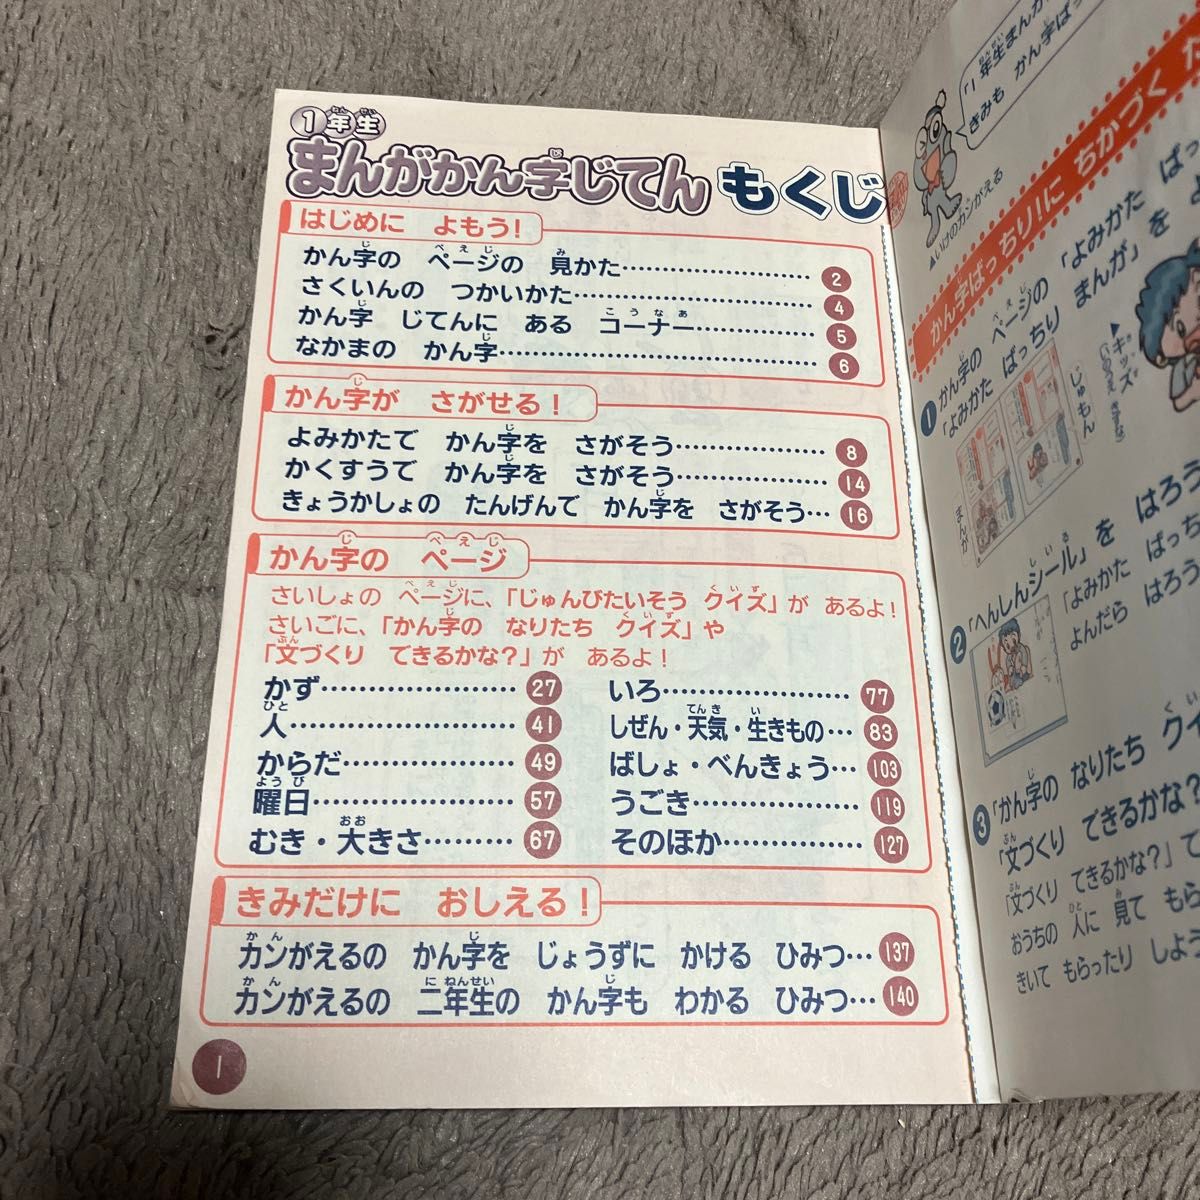 1年生
まんがかん字じてん もくじ
はじめに よもう!
かん字の ページの 見かた…… 2
さくいんの つかいかた…… 4
かん字 じてんに ある コーナー…… 5
なかまの かん字…… 6
かん字が さがせる!
よみかたで かん字を さがそう…… 8
かくすうで かん字を さがそう…… 14
きょうかしょの たんげんで かん字を さがそう… 16
かん字の ページ
さいしょの ページに、「じゅんびたいそう クイズ」が あるよ!
さいごに、「かん字の なりたち クイズ」や
「文づくり できるかな?」が あるよ!
かず…… 27
人…… 41
からだ…… 49
曜日…… 57
むき・大きさ…… 67
いろ…… 77
しぜん・天気・生きもの… 83
ばしょ・べんきょう… 103
うごき…… 119
そのほか…… 127
きみだけに おしえる!
カンがえるの かん字を じょうずに かける ひみつ… 137
カンがえるの 二年生の かん字も わかる ひみつ… 140
1
「1年生まんが
かん字ばっ
きみも
▲いけのカンがえる
かん字ばっちり!に ちかづく た
1 かん字の ページの「よみかた ばっ
「よみかた ばっちり まんが」を よ
▶キッズ
じゅもん
まんが
2 「へんしんシール」を はろう
「よみかた ばっち
よんだら はろう
3 「かん字の なりたち クイ
「文づくり できるかな?
「文づくり できるかな?」で
おうちの 人に 見て もら
きいて もらったり しよう